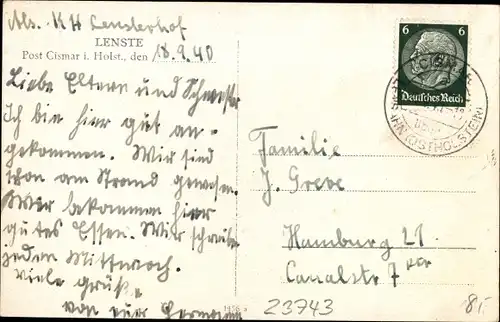 Abs. KH Lensterhof
LENSTE
Post Cismar i. Holst., den 18.9.40
Liebe Eltern und Schwester
Ich bin hier gut an-
gekommen. Wir sind
schon am Strand gewesen.
Wir bekommen hier
gutes Essen. Wir schreiben
jeden Mittwoch.
Viele Grüße
von euer Hermann
6 6
Deutsches Reich
CISMAR
(OSTHOLSTEIN)
Familie
J. Greve
Hamburg 21
Canalstr. 7
23743
8,-